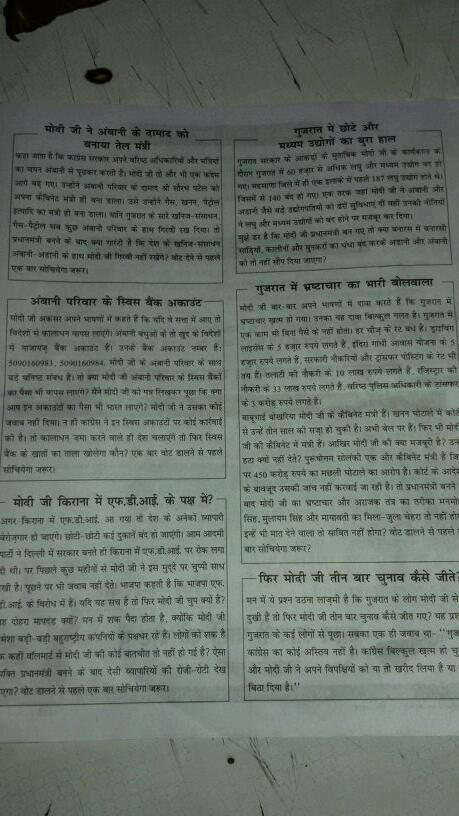 मोदी जी ने अंबानी के दामाद को
बनाया तेल मंत्री
कहा जाता है कि कांग्रेस सरकार अपने वरिष्ठ अधिकारियों और मंत्रियों
का चयन अंबानी से पूछकर करती है। मोदी जी तो और भी एक कदम
आगे बढ़ गए। उन्होंने अंबानी परिवार के दामाद श्री सौरभ पटेल को
अपना कैबिनेट मंत्री ही बना डाला। उसे उन्होंने गैस, खनन, पेट्रोल
इत्यादि का मंत्री ही बना डाला। यानि गुजरात के सारे खनिज-संसाधन,
गैस-पेट्रोल सब कुछ अंबानी परिवार के हाथ गिरवी रख दिया। तो
प्रधानमंत्री बनने के बाद क्या गारंटी है कि देश के खनिज-संसाधन
अंबानी-अडानी के हाथ मोदी जी गिरवी नहीं रखेंगे? वोट देने से पहले
एक बार सोचियेगा जरूर।
अंबानी परिवार के स्विस बैंक अकाउंट
मोदी जी अकसर अपने भाषणों में कहते हैं कि यदि वे सत्ता में आए तो
विदेशों से कालाधन वापस लाएंगे। अंबानी बंधुओं के तो खुद के विदेशों
में नाजायज़ बैंक अकाउंट हैं। उनके बैंक अकाउंट नम्बर हैं:
5090160983, 5090160984. मोदी जी के अंबानी परिवार के साथ
बड़े घनिष्ठ संबंध हैं। तो क्या मोदी जी अंबानी परिवार के स्विस बैंकों
का पैसा भी वापस लाएंगे? मैंने मोदी जी को पत्र लिखकर पूछा कि क्या
आप इन अकाउंटों का पैसा भी भारत लाएंगे? मोदी जी ने उसका कोई
जवाब नहीं दिया। न ही कांग्रेस ने इन स्विस अकाउंटों पर कोई कार्रवाई
की है। तो कालाधन जमा करने वाले ही देश चलाएंगे तो फिर स्विस
बैंक के खातों का ताला खोलेगा कौन? एक बार वोट डालने से पहले
सोचियेगा जरूर।
मोदी जी किराना में एफ.डी.आई. के पक्ष में?
अगर किराना में एफ.डी.आई. आ गया तो देश के अनेकों व्यापारी
बेरोज़गार हो जाएंगे। छोटी-छोटी कई दुकानें बंद हो जाएंगी। आम आदमी
पार्टी ने दिल्ली में सरकार बनते ही किराना में एफ.डी.आई. पर रोक लगा
दी थी। पर पिछले कुछ महीनों से मोदी जी ने इस मुद्दे पर चुप्पी साध
रखी है। पूछने पर भी जवाब नहीं देते। भाजपा कहती है कि भाजपा एफ.
डी.आई. के विरोध में है। यदि यह सच है तो फिर मोदी जी चुप क्यों हैं?
यह दोहरा मापदंड क्यों? मन में शक पैदा होता है, क्योंकि मोदी जी
हमेशा बड़ी-बड़ी बहुराष्ट्रीय कंपनियों के पक्षधर रहे हैं। लोगों को शक है
कि कहीं वॉलमार्ट से मोदी जी की कोई बातचीत तो नहीं हो गई है? ऐसा
व्यक्ति प्रधानमंत्री बनने के बाद देसी व्यापारियों की रोजी-रोटी देख
पाएगा? वोट डालने से पहले एक बार सोचियेगा जरूर।
गुजरात में छोटे और
मध्यम उद्योगों का बुरा हाल
गुजरात सरकार के आंकड़ों के मुताबिक मोदी जी के कार्यकाल के
दौरान गुजरात में 60 हजार से अधिक लघु और मध्यम उद्योग बंद हो
गए। महसाणा जिले में ही एक इलाके में पहले 187 लघु उद्योग होते थे।
जिसमें से 140 बंद हो गए। एक तरफ जहां मोदी जी ने अंबानी और
अडानी जैसे बड़े उद्योगपतियों को ढेरों सुविधाएं दीं वहीं उनकी नीतियों
ने लघु और मध्यम उद्योगों को बंद होने पर मजबूर कर दिया।
मुझे डर है कि मोदी जी प्रधानमंत्री बन गए तो क्या बनारस में बनारसी
साड़ियों, कालीनों और बुनकरों का धंधा बंद करके अडानी और अंबानी
को तो नहीं सौंप दिया जाएगा?
गुजरात में भ्रष्टाचार का भारी बोलवाला
मोदी जी बार-बार अपने भाषणों में दावा करते हैं कि गुजरात में
भ्रष्टाचार खत्म हो गया। उनका यह दावा बिल्कुल गलत है। गुजरात में
एक काम भी बिना पैसे के नहीं होता। हर चीज़ के रेट बंधे हैं। ड्राइविंग
लाइसेंस के 5 हजार रुपये लगते हैं, इंदिरा गांधी आवास योजना के 5
हजार रुपये लगते हैं, सरकारी नौकरियों और ट्रांसफर पोस्टिंग के रेट भी
तय हैं। तलाटी की नौकरी के 10 लाख रुपये लगते हैं, रजिस्ट्रार की
नौकरी के 33 लाख रुपये लगते हैं, वरिष्ठ पुलिस अधिकारी के ट्रांसफर
के 3 करोड़ रुपये लगते हैं।
बाबूभाई बोखरिया मोदी जी के कैबिनेट मंत्री हैं। खनन घोटाले में कोर्ट
से उन्हें तीन साल की सज़ा हो चुकी है। अभी बेल पर हैं। फिर भी मोदी
जी की कैबिनेट में मंत्री हैं। आखिर मोदी जी की क्या मजबूरी है? उन्हें
हटा क्यों नहीं देते? पुरूषोत्तम सोलंकी एक और कैबिनेट मंत्री हैं जिन
पर 450 करोड़ रुपये का मछली घोटाले का आरोप है। कोर्ट के आदेश
के बावजूद उसकी जांच नहीं करवाई जा रही है। तो प्रधानमंत्री बनने के
बाद मोदी जी का भ्रष्टाचार और अराजक तंत्र का तरीका मनमोहन
सिंह, मुलायम सिंह और मायावती का मिला-जुला चेहरा तो नहीं होगा?
इन्हें भी मात देने वाला तो साबित नहीं होगा? वोट डालने से पहले एक
बार सोचियेगा जरूर?
फिर मोदी जी तीन बार चुनाव कैसे जीते?
मन में ये प्रश्न उठना लाज़मी है कि गुजरात के लोग मोदी जी से
दुखी हैं तो फिर मोदी जी तीन बार चुनाव कैसे जीत गए? यह प्रश्न
गुजरात के कई लोगों से पूछा। सबका एक ही जवाब था- "गुजरात
कांग्रेस का कोई अस्तित्व नहीं है। कांग्रेस बिल्कुल खत्म हो चुकी
और मोदी जी ने अपने विपक्षियों को या तो खरीद लिया है या
बिठा दिया है।"